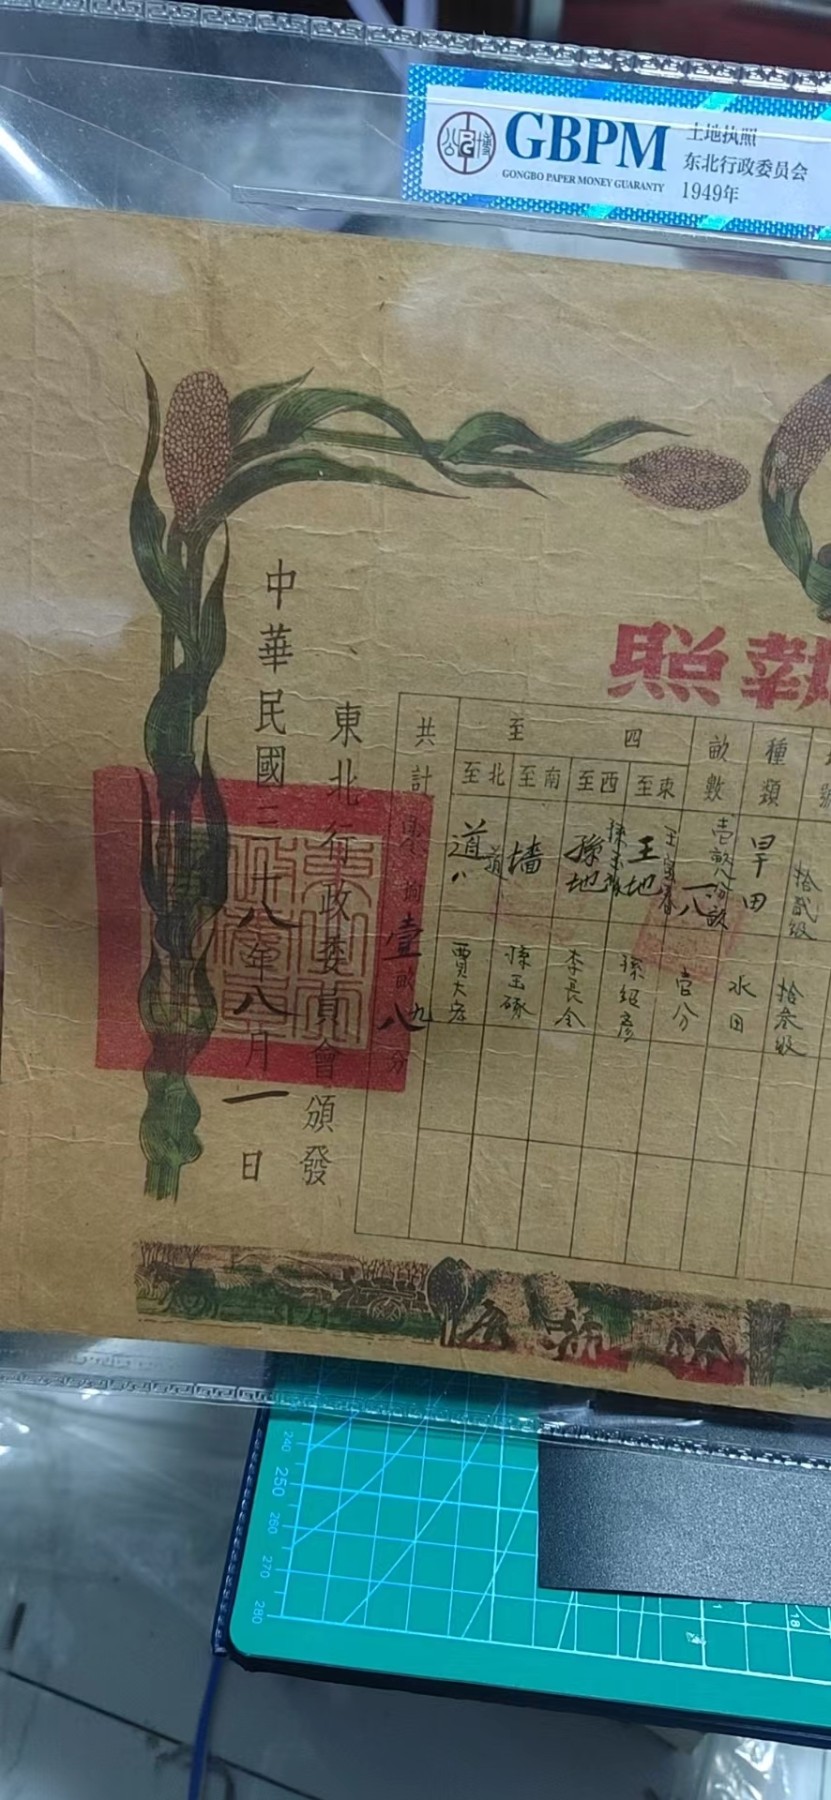 GBPM
GONGBO PAPER MONEY GUARANTY
土地执照
东北行政委员会
1949年
執照
種類
旱田
水田
畝數
壹分
四至
東至
王地
孫紹彥
西至
孫地
李長全
南至
墻
孫玉琢
北至
道
賈大
共計
壹畝八分
拾貳級
拾叁級
東北行政委員會頒發
中華民國三十八年八月一日
240
250
260
270
280
18